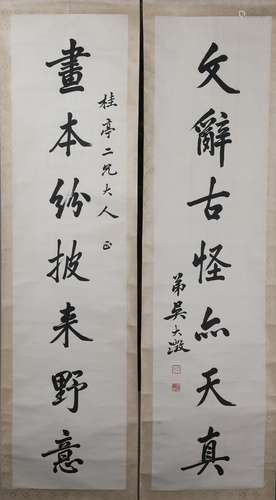 文辭古怪亦天真
弟吳大澂
桂亭二兄大人正
畫本紛披来野意